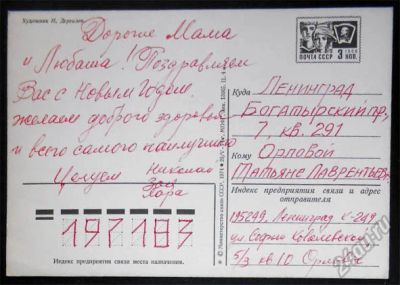 Художник Н. Дергилев
Дорогие Мама
и Любаша! Поздравляем
Вас с Новым Годом
желаем доброго здоровья
и всего самого наилучшего
Целуем Николай
Зоя
Лора
197183
Индекс предприятия связи места назначения.
© Министерство связи СССР, 1974
ПОЧТА СССР 3 КОП.
1966
Куда Ленинград
Богатырский пр,
7, кв. 291
Кому Орловой
Татьяне Лаврентьевне
Индекс предприятия связи и адрес
отправителя
195249, Ленинград К-249
ул. Софьи Ковалевской
5/3 кв 10 Орловы
24au.ru